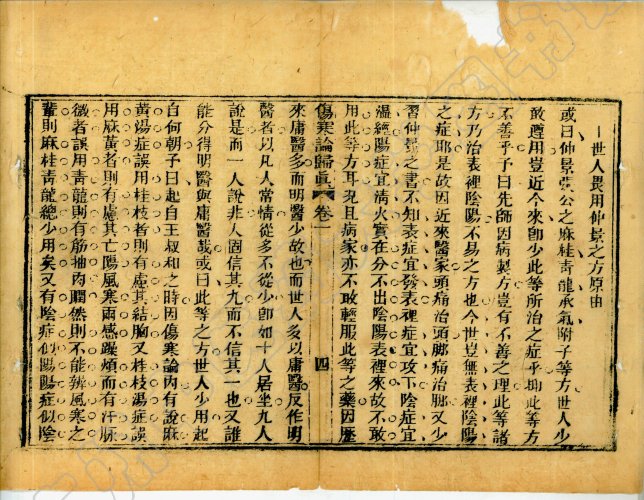 一世人畏用仲景之方原由
或曰仲景張公之麻桂青龍承氣附子等方世人少
敢遵用豈近今來卽少此等所治之症乎抑此等方
不善乎予曰先師因病製方豈有不善之理此等諸
方乃治表裡陰陽不易之方也今世豈無表裡陰陽
之症耶是故因近來醫家頭痛治頭脚痛治脚又少
習仲景之書不知表症宜發表裡症宜攻下陰症宜
溫經陽症宜淸火實在分不出陰陽表裡來故不敢
用此等方耳況且病家亦不敢輕服此等之藥因歷
傷寒論歸真 卷一 四
來庸醫多而明醫少故也而世人多以庸醫反作明
醫者以凡人常情從多不從少卽如十人居坐九人
說是而一人說非人固信其九而不信其一也又誰
能分得明醫與庸醫哉或曰此等之方世人少用起
自何朝予曰起自王叔和之時因傷寒論內有說麻
黃湯症誤用桂枝者則有慮其結胸又桂枝湯症誤
用麻黃者則有慮其亡陽風寒兩感躁煩而有汗脉
微者誤用靑龍則有筋惕肉瞤然則不能辨風寒之
輩則麻桂青龍總少用矣又有陰症似陽陽症似陰